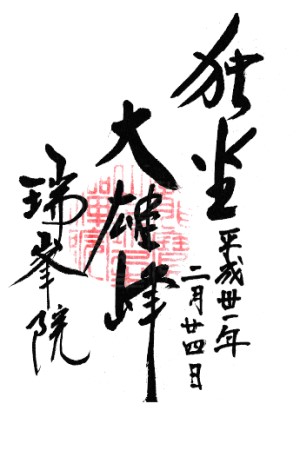 独坐
大雄峰
平成卅一年
二月廿四日
瑞峯院